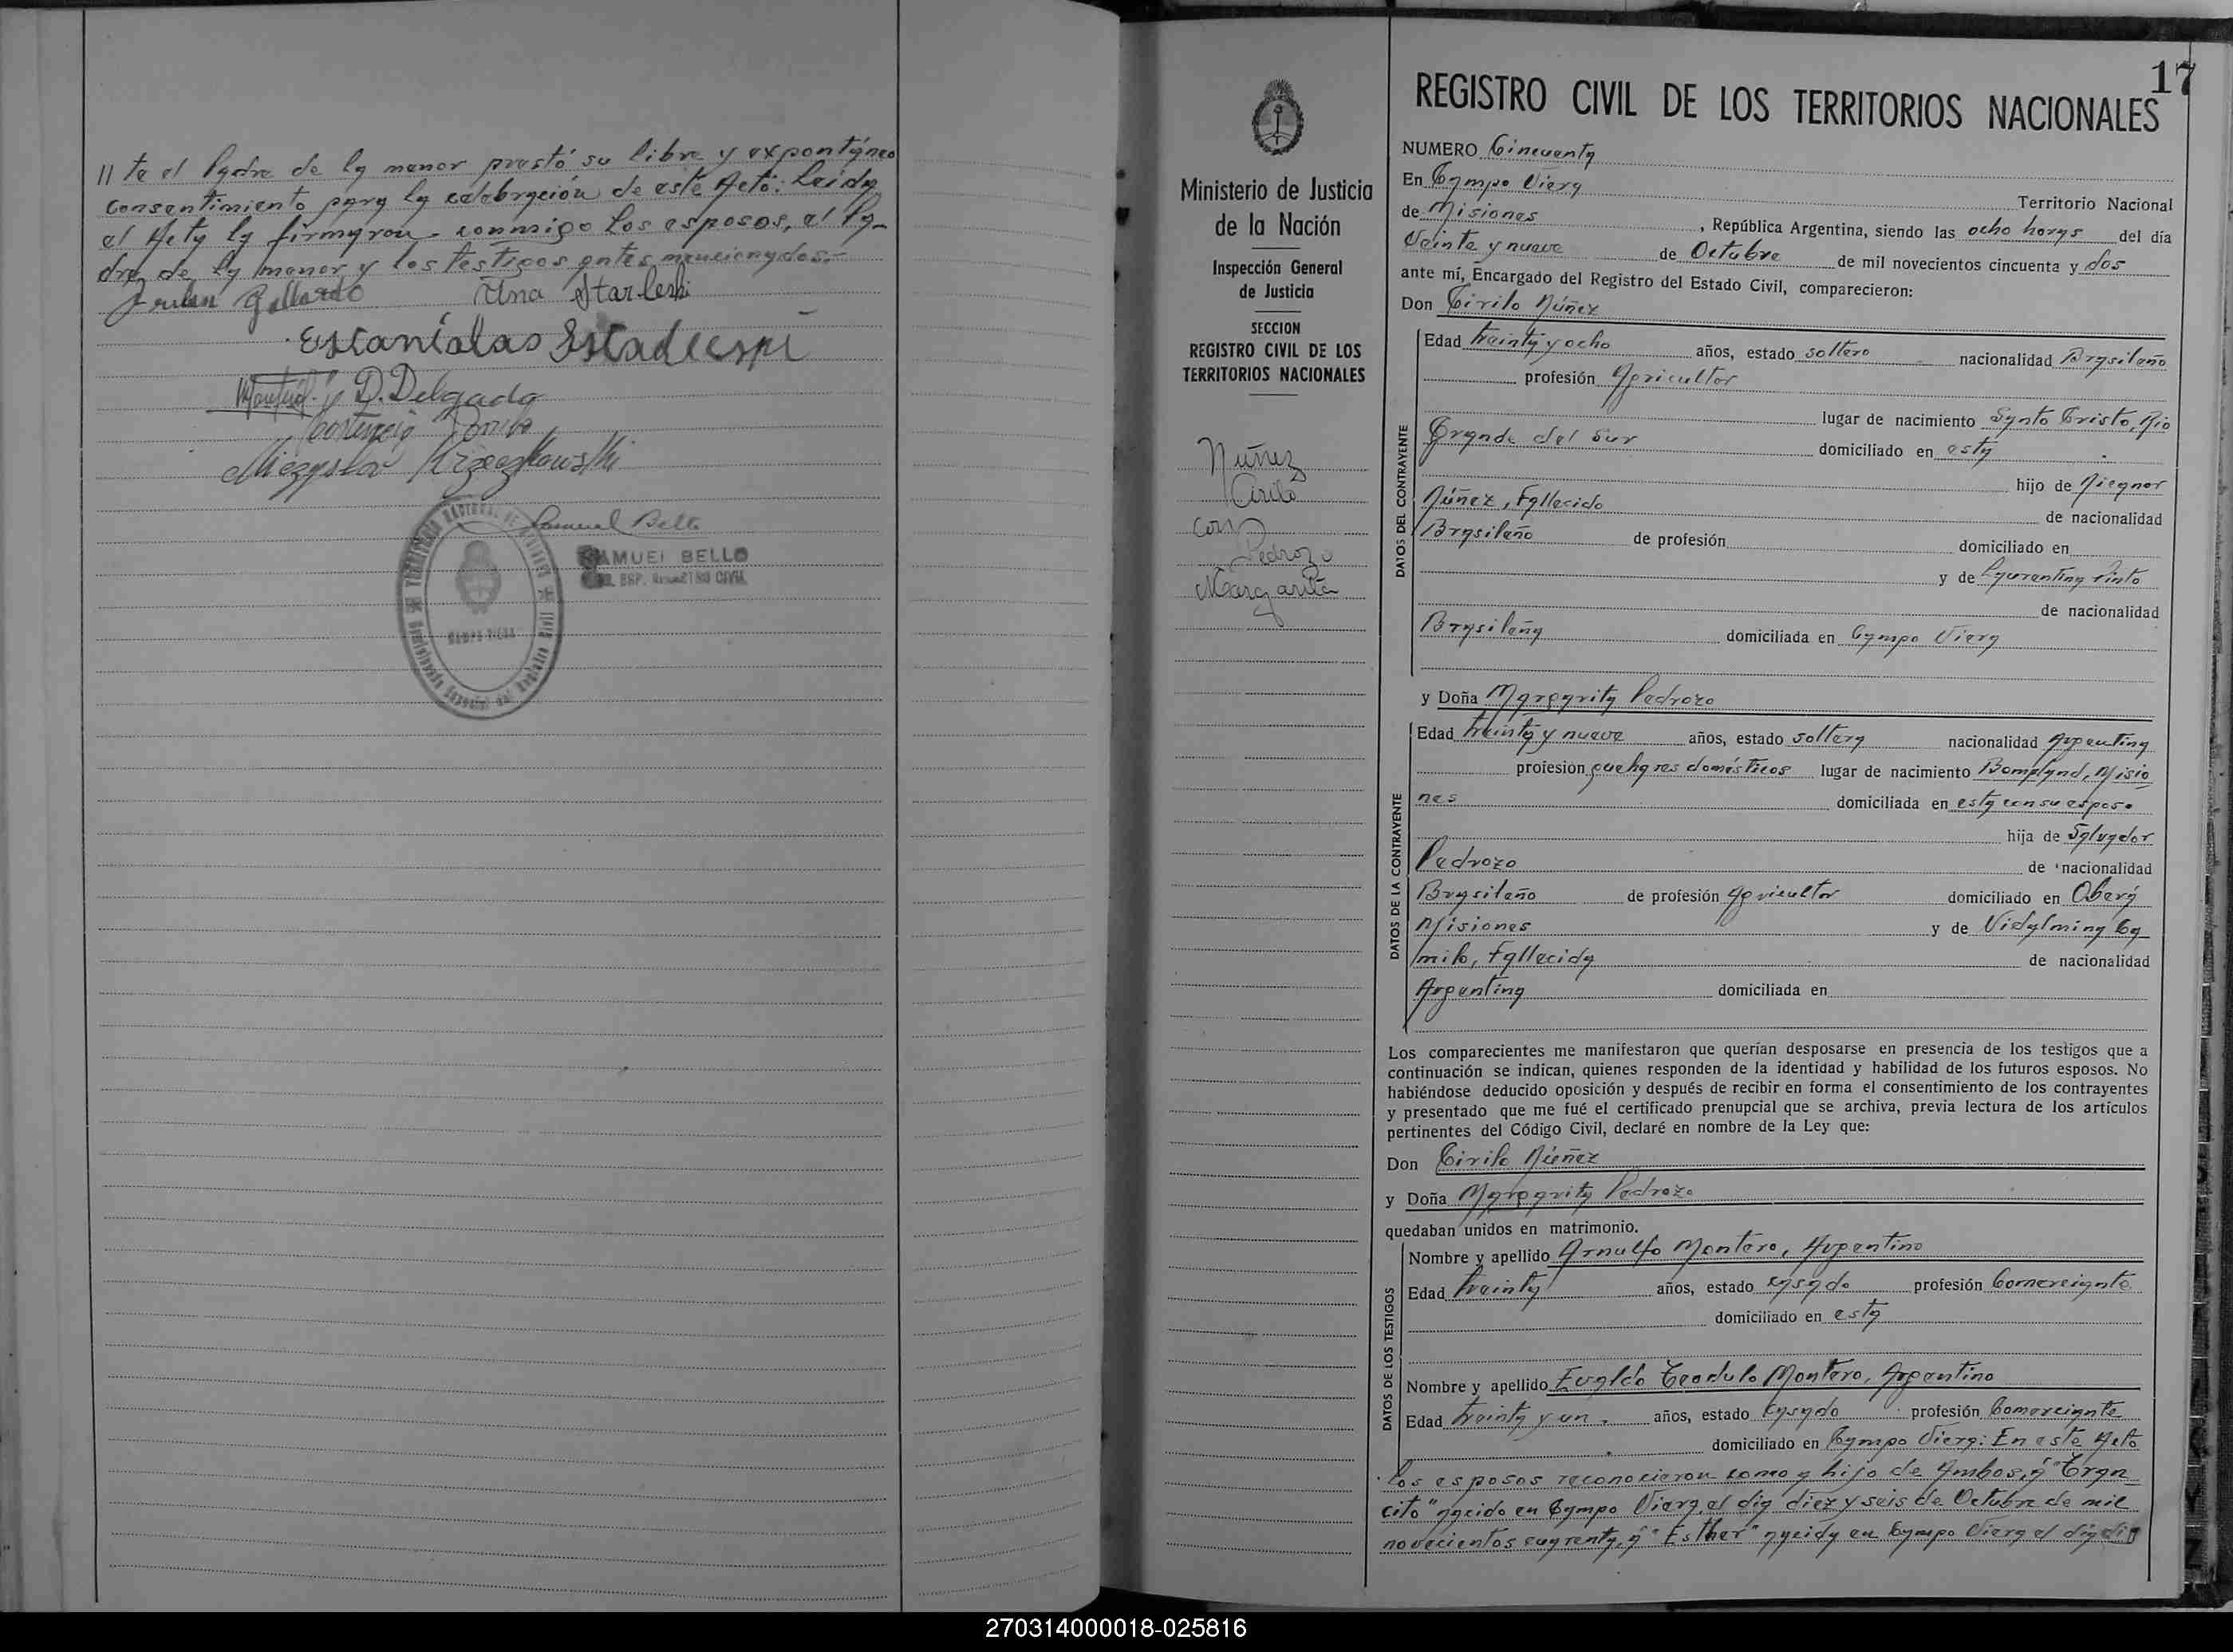 // te el Padre de la menor prestó su libre y expontáneo
consentimiento para la celebración de este Acto: Leida
el Acta la firmaron conmigo los esposos, el Pa-
dre de la menor y los testigos antes mencionados.-
Julian Gallardo Ana Starleski
Estaníalas Estadecspi
D. Delgado
Samuel Bello
SAMUEL BELLO
ESP. REGISTRO CIVIL
CAMPO VIERA
17
REGISTRO CIVIL DE LOS TERRITORIOS NACIONALES
Ministerio de Justicia
de la Nación
Inspección General
de Justicia
SECCION
REGISTRO CIVIL DE LOS
TERRITORIOS NACIONALES
Núñez
Cirilo
con
Pedrozo
Margarita
NUMERO Cincuenta
En Campo Viera Territorio Nacional
de Misiones, República Argentina, siendo las ocho horas del día
Veinte y nueve de Octubre de mil novecientos cincuenta y dos
ante mí, Encargado del Registro del Estado Civil, comparecieron:
Don Cirilo Núñez
DATOS DEL CONTRAYENTE
Edad treinta y ocho años, estado soltero nacionalidad Brasileño
profesión Agricultor
lugar de nacimiento Santo Cristo, Rio
Grande del Sur domiciliado en esta
hijo de Nicanor
Núñez, Fallecido de nacionalidad
Brasileño de profesión domiciliado en
y de Laurentina Pinto
de nacionalidad
Brasileña domiciliada en Campo Viera
y Doña Margarita Pedrozo
DATOS DE LA CONTRAYENTE
Edad treinta y nueve años, estado soltera nacionalidad Argentina
profesión quehaceres domésticos lugar de nacimiento Bompland, Misio
nes domiciliada en esta con su esposo
hija de Salvador
Pedrozo de nacionalidad
Brasileño de profesión Agricultor domiciliado en Oberá
Misiones y de Vidalmina Ca
milo, Fallecida de nacionalidad
Argentina domiciliada en
Los comparecientes me manifestaron que querían desposarse en presencia de los testigos que a
continuación se indican, quienes responden de la identidad y habilidad de los futuros esposos. No
habiéndose deducido oposición y después de recibir en forma el consentimiento de los contrayentes
y presentado que me fué el certificado prenupcial que se archiva, previa lectura de los artículos
pertinentes del Código Civil, declaré en nombre de la Ley que:
Don Cirilo Núñez
y Doña Margarita Pedrozo
quedaban unidos en matrimonio.
DATOS DE LOS TESTIGOS
Nombre y apellido Arnulfo Montero, Argentino
Edad treinta años, estado casado profesión Comerciante
domiciliado en esta
Nombre y apellido Evaldo Teodulo Montero, Argentino
Edad treinta y un años, estado casado profesión Comerciante
domiciliado en Campo Viera: En este Acto
los esposos reconocieron como a hijo de Ambos, á "Gran
cito" nacido en Campo Viera el dia diez y seis de Octubre de mil
novecientos cuarenta, á "Esther" nacida en Campo Viera el dia
270314000018-025816